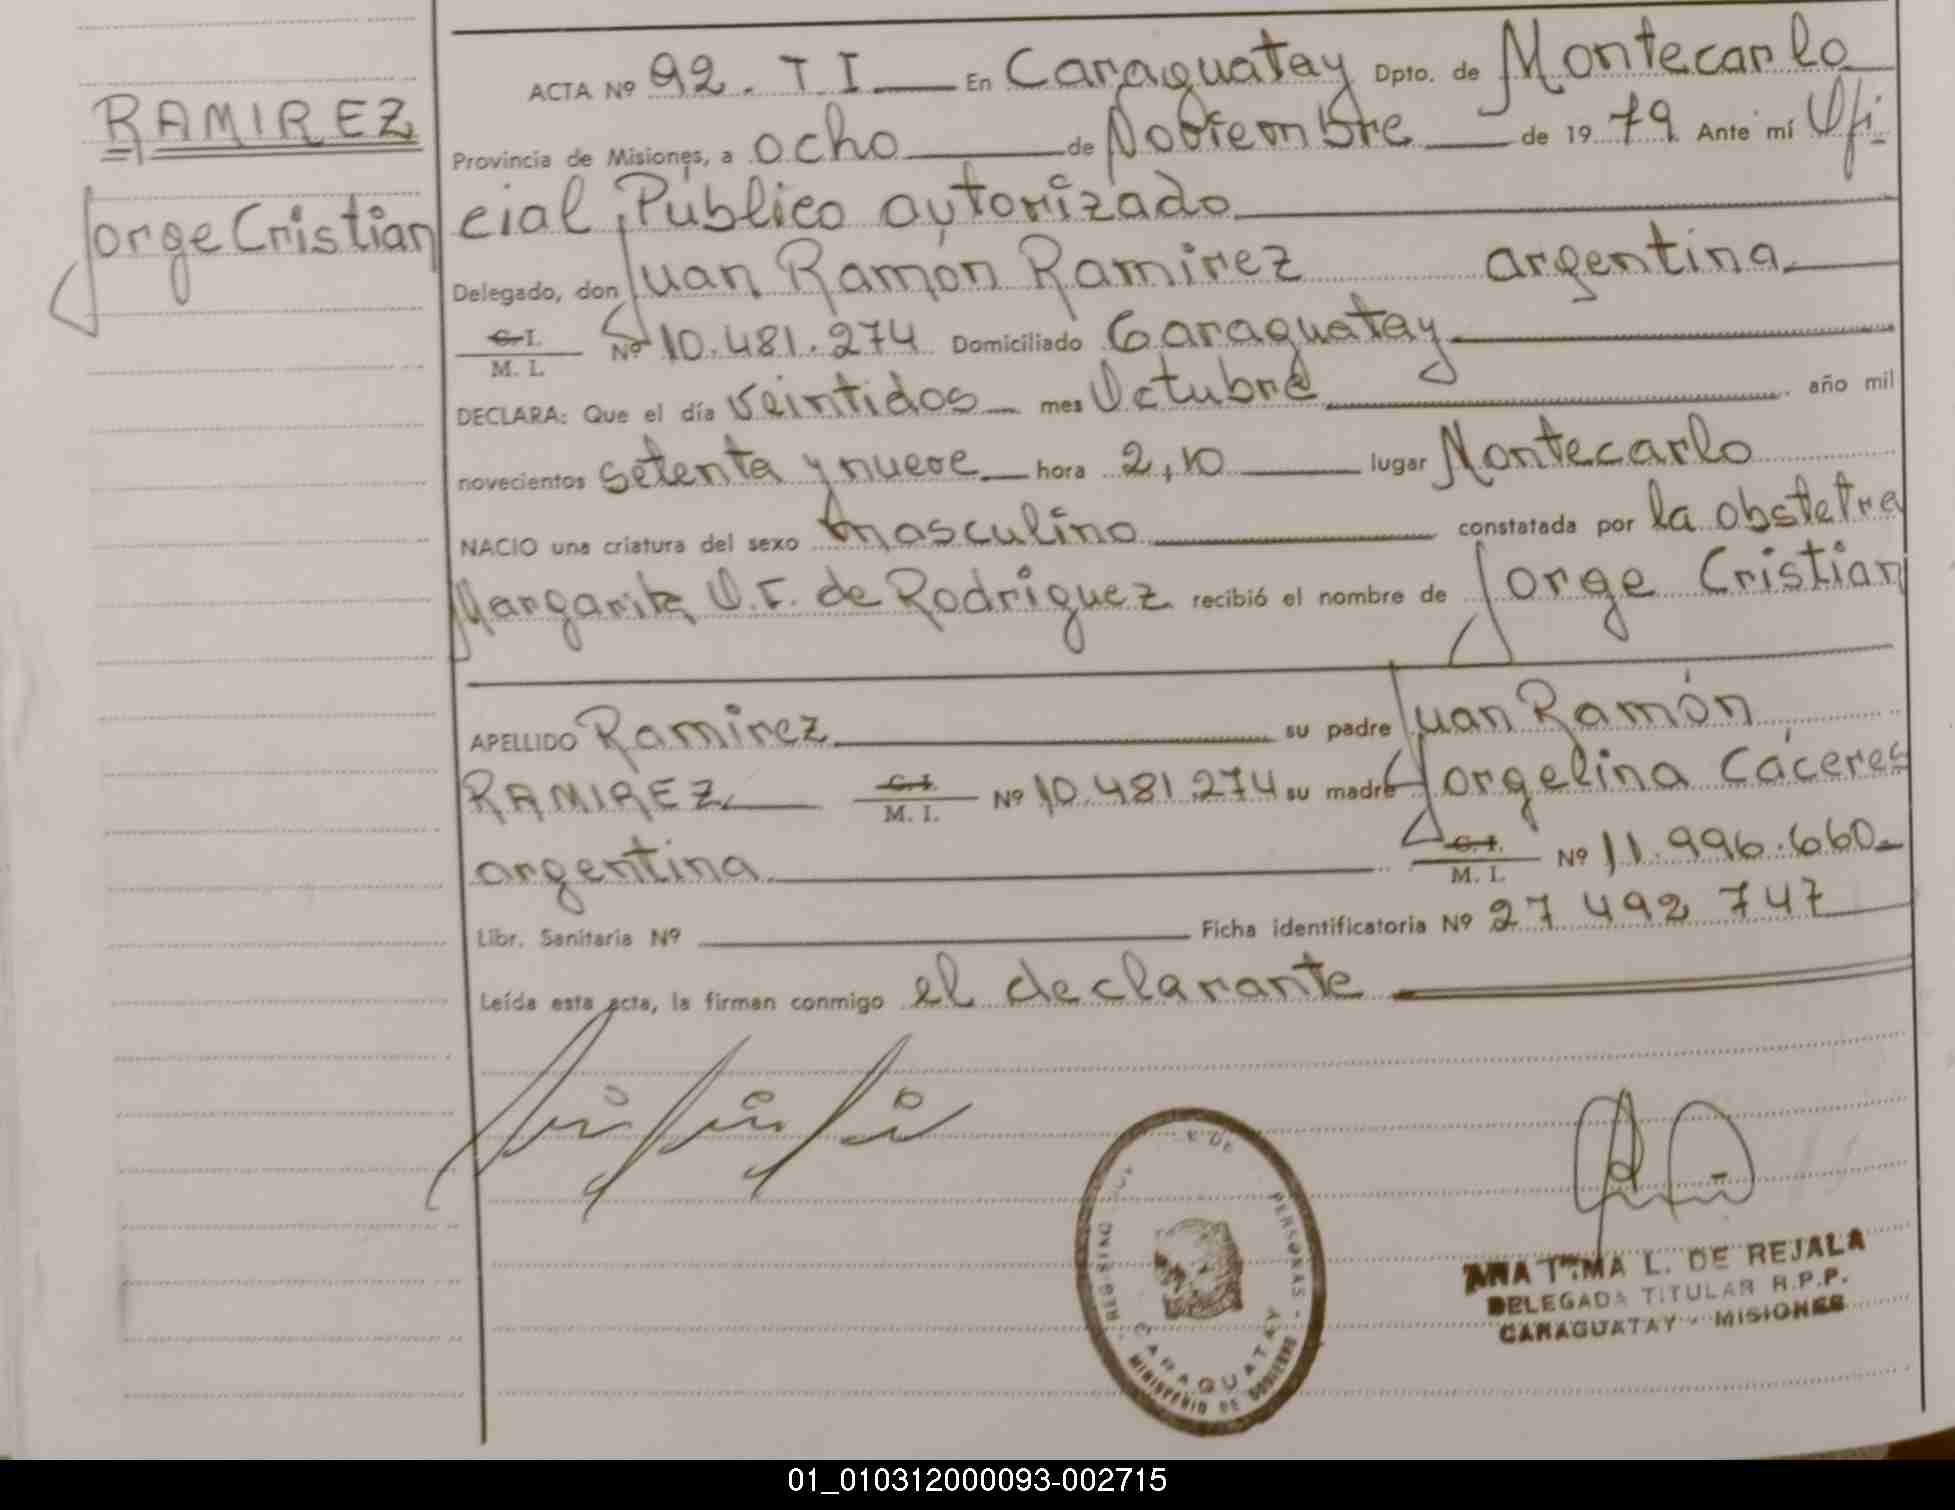 RAMIREZ
Jorge Cristian
ACTA Nº 92. T I. En Caraguatay Dpto. de Montecarlo
Provincia de Misiones, a ocho de Noviembre de 1979 Ante mí Ofi
cial Público autorizado
Delegado, don Juan Ramón Ramirez argentina
C. I.
M. I. Nº 10.481.274 Domiciliado Caraguatay
DECLARA: Que el día veintidos mes Octubre año mil
novecientos setenta y nueve hora 2,10 lugar Montecarlo
NACIO una criatura del sexo masculino constatada por la obstetra
Margarita O. F. de Rodriguez recibió el nombre de Jorge Cristian
APELLIDO Ramirez su padre Juan Ramón
RAMIREZ C. I. M. I. Nº 10.481.274 su madre Jorgelina Cáceres
argentina C. I. M. I. Nº 11.996.660
Libr. Sanitaria Nº Ficha identificatoria Nº 27 492 747
Leída esta acta, la firman conmigo el declarante
REGISTRO DE PERSONAS - CARAGUATAY
MINISTERIO DE GOBIERNO
ANA L. DE REJALA
DELEGADA TITULAR R.P.P.
CARAGUATAY - MISIONES
01_010312000093-002715